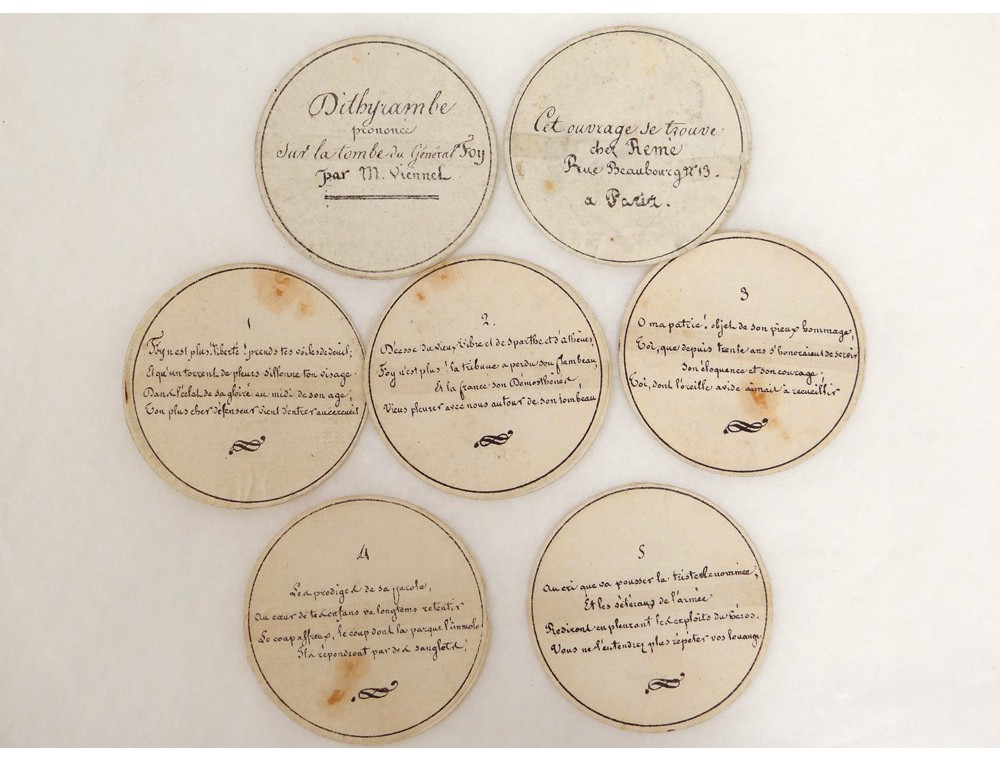 Dithyrambe
prononcé
Sur la tombe du Général Foy
par M. Viennet
Cet ouvrage se trouve
chez Remé
Rue Beaubourg N° 13.
a Paris.
1
Foy n'est plus! liberté! prends tes voiles de deuil;
Et qu'un torrent de pleurs sillonne ton visage.
Dans l'éclat de sa gloire au midi de son age;
Ton plus cher défenseur vient d'entrer au cercueil
2.
Déesse du vieux Tibre et de Sparthe et d'athènes,
Foy n'est plus! la tribune a perdu son flambeau,
Et la france son Démosthènes
Viens pleurer avec nous autour de son tombeau!
3
O ma patrie! objet de son pieux hommage,
Toi, que depuis trente ans s'honoraient de servir
Son éloquence et son courage;
Toi, dont l'oreille avide aimait a recueillir
4
Les prodiges de sa parole,
Au cœur de tes enfans va longtems retentir
Le coup affreux, le coup dont la parque l'immole
Ils répondront par des sanglots;
5
Au cri que va pousser la triste Renommée;
Et les vétérans de l'armée
Rediront en pleurant les exploits du héros.
Vous ne l'entendrez plus répéter vos louang